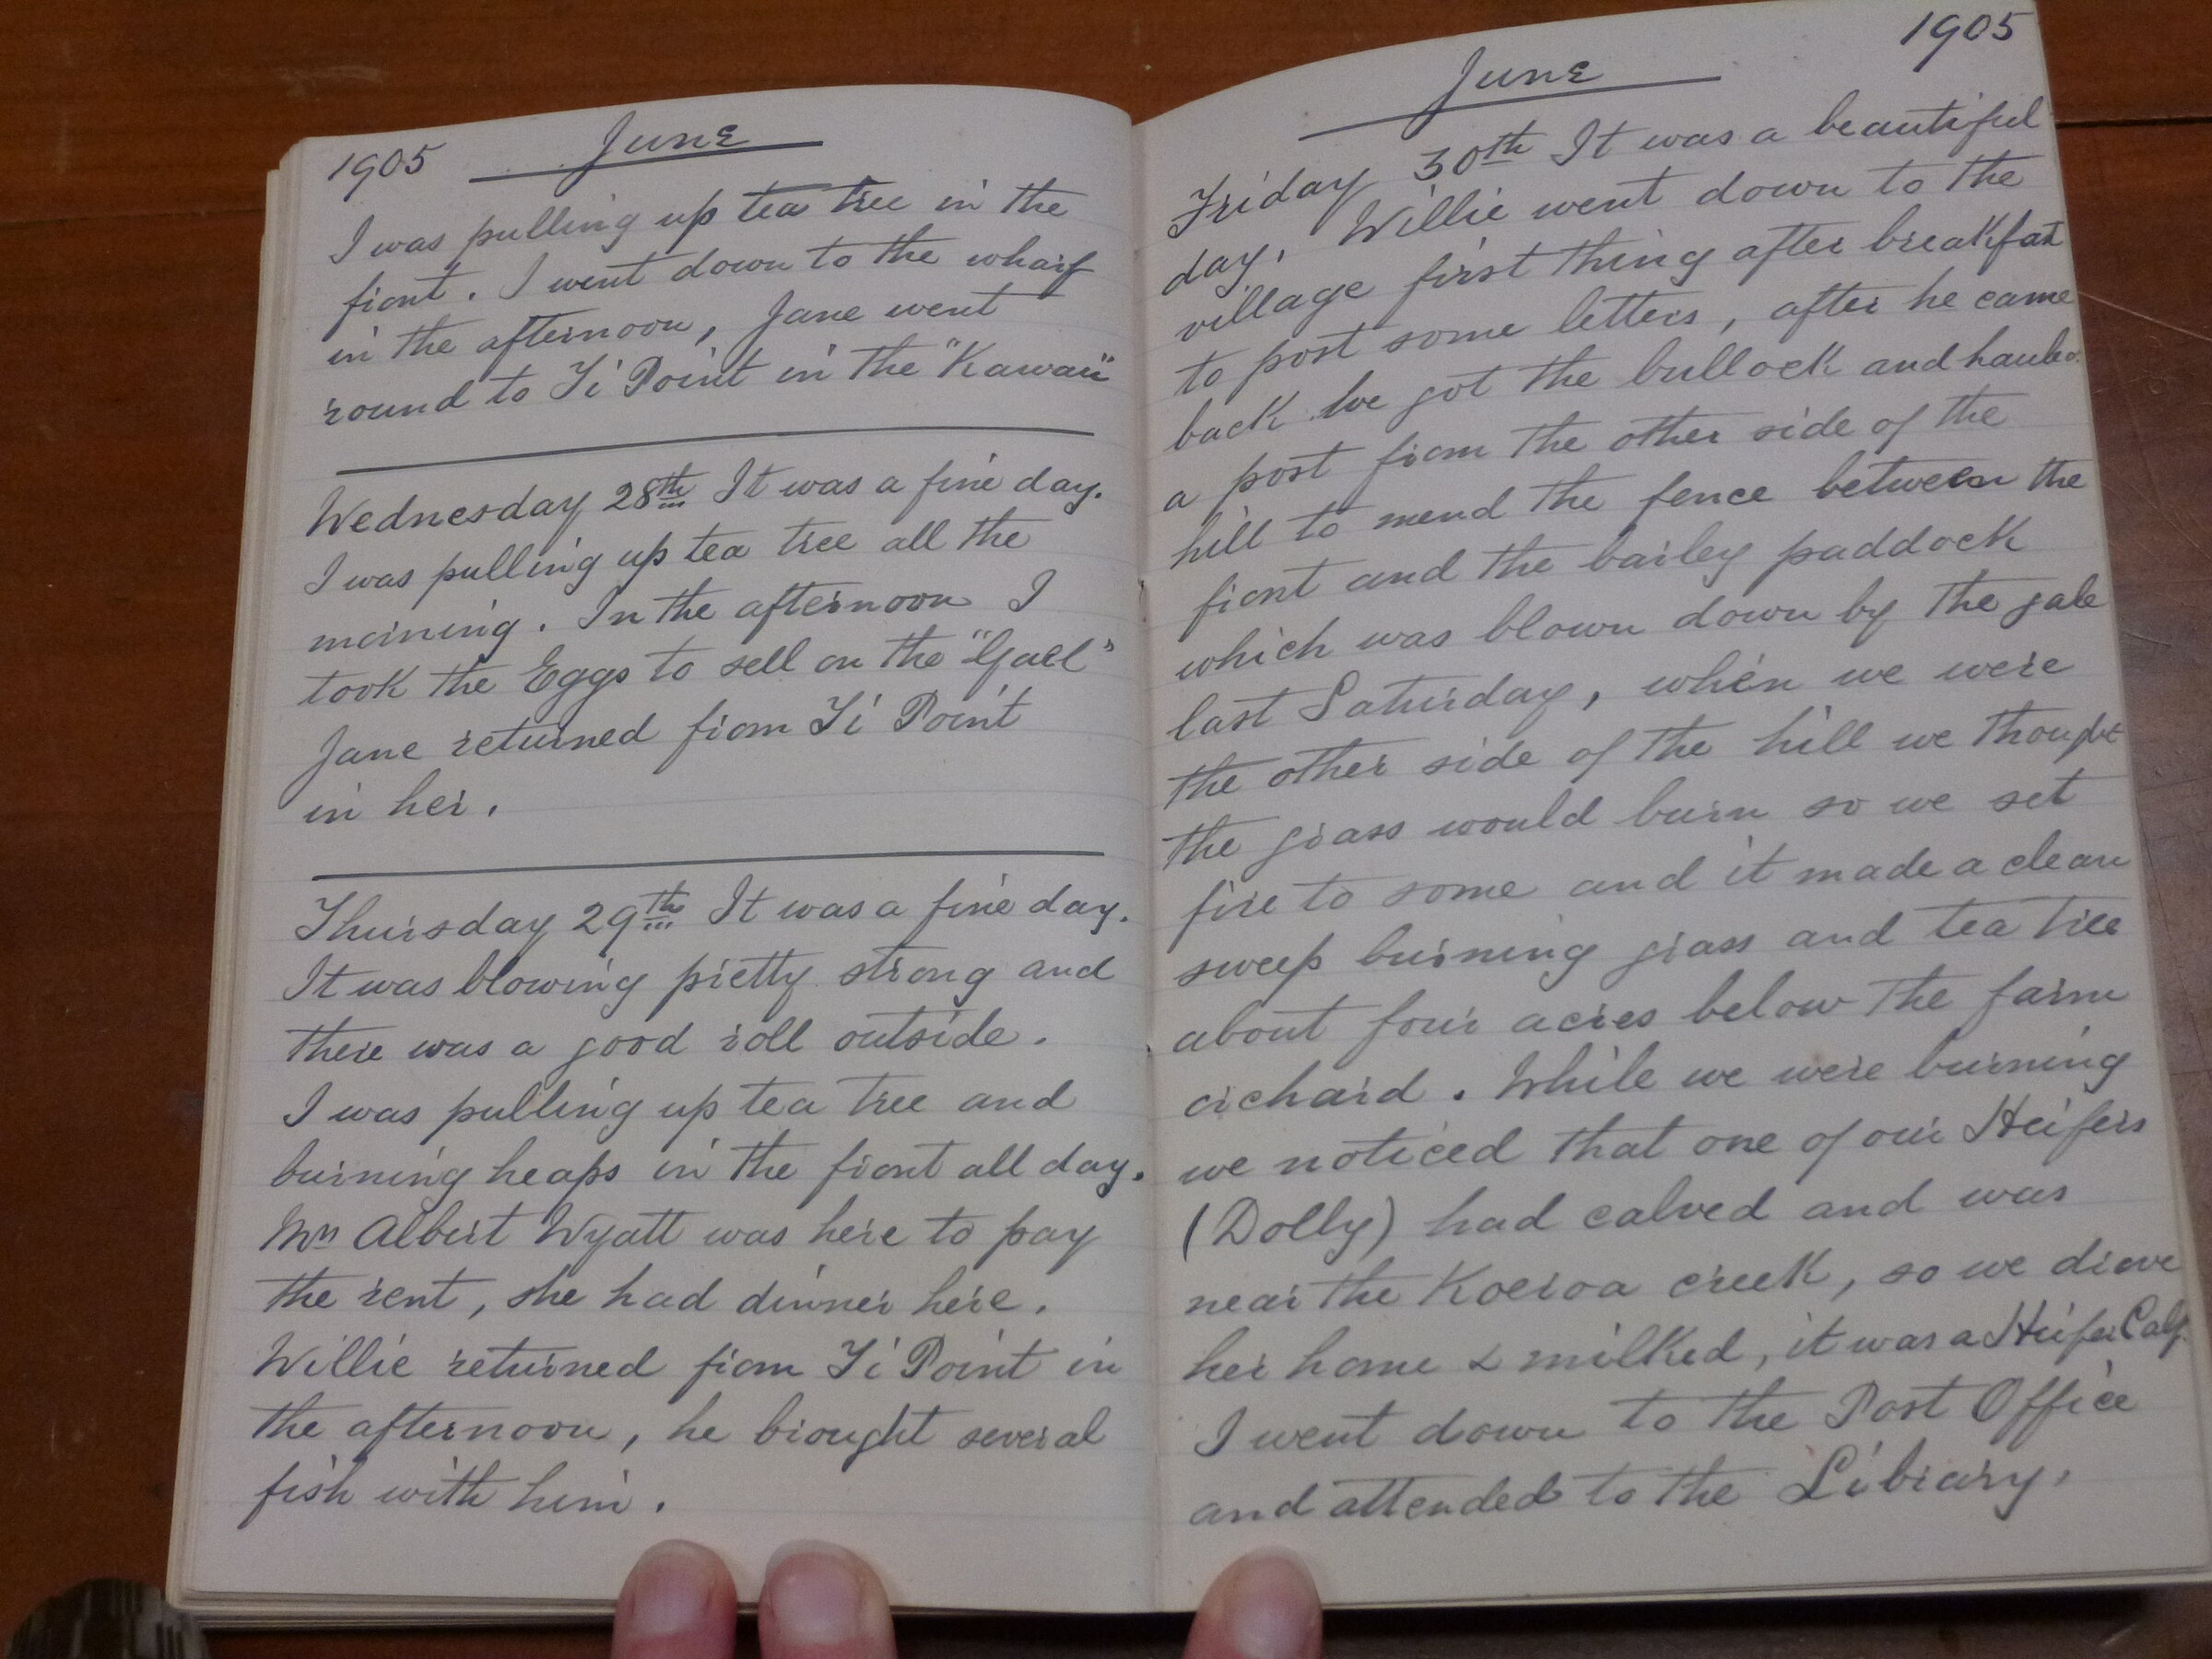 1905 June
I was pulling up tea tree in the
front. I went down to the wharf
in the afternoon, Jane went
round to Ti Point in the "Kawau"
Wednesday 28th It was a fine day.
I was pulling up tea tree all the
morning. In the afternoon I
took the Eggs to sell on the "Gael"
Jane returned from Ti Point
in her.
Thursday 29th It was a fine day.
It was blowing pretty strong and
there was a good roll outside.
I was pulling up tea tree and
burning heaps in the front all day.
Mrs Albert Wyatt was here to pay
the rent, she had dinner here.
Willie returned from Ti Point in
the afternoon, he brought several
fish with him.
1905
June
Friday 30th It was a beautiful
day. Willie went down to the
village first thing after breakfast
to post some letters, after he came
back we got the bullock and hauled
a post from the other side of the
hill to mend the fence between the
front and the barley paddock
which was blown down by the gale
last Saturday, when we were
the other side of the hill we thought
the grass would burn so we set
fire to some and it made a clean
sweep burning grass and tea tree
about four acres below the farm
orchard. While we were burning
we noticed that one of our Heifers
(Dolly) had calved and was
near the Koeroa creek, so we drove
her home & milked, it was a Heifer Calf.
I went down to the Post Office
and attended to the Library.